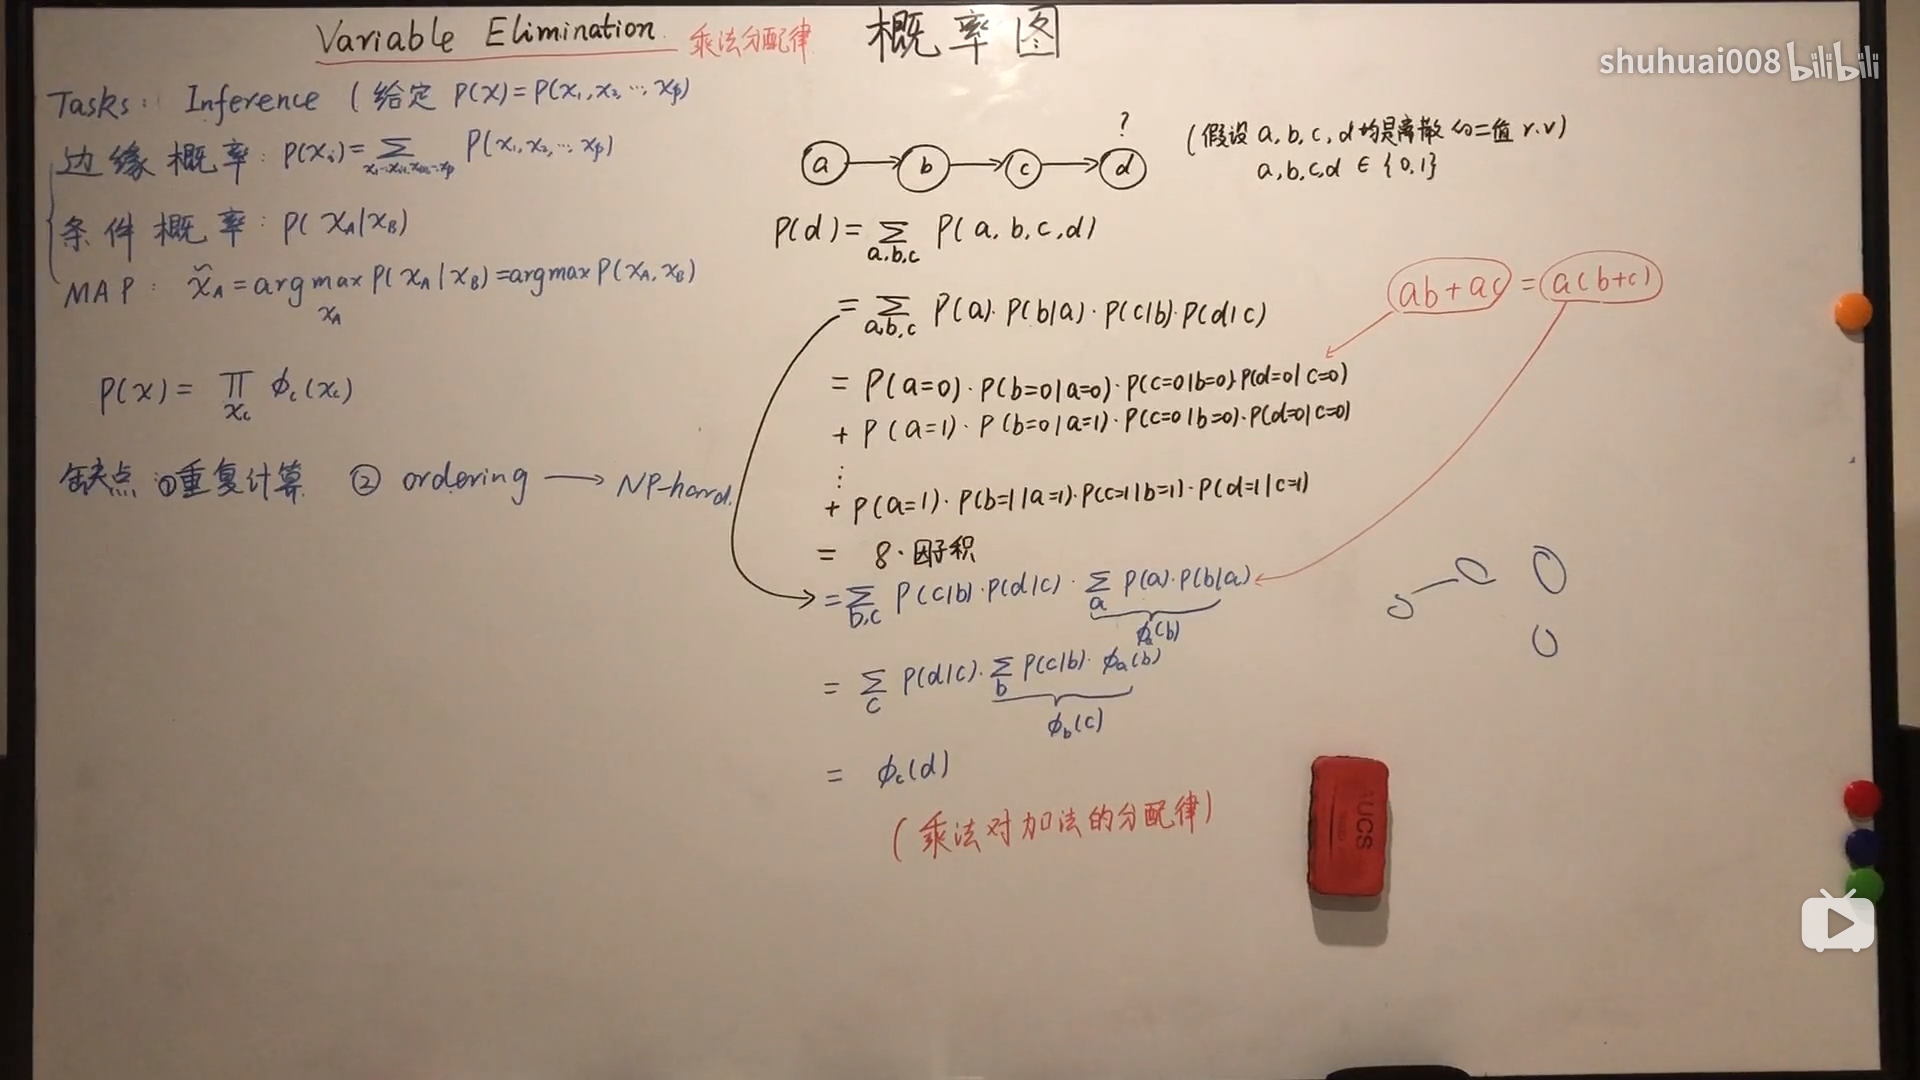 Variable Elimination 乘法分配律 概率图
shuhuai008 bilibili
Tasks: Inference (给定 P(x)=P(x₁,x₂,…,xₚ)
边缘概率: P(xᵢ)=∑ P(x₁,x₂,…,xₚ)
条件概率: P(x_A|x_B)
MAP: x̂_A=argmax P(x_A|x_B)=argmax P(x_A,x_B)
x_A
P(x)= ∏ ϕ_c(x_c)
x_c
缺点 ①重复计算 ② ordering → NP-hard.
?
a → b → c → d
(假设 a,b,c,d均是离散的二值 r.v)
a,b,c,d ∈ {0,1}
P(d)=∑ P(a,b,c,d)
a,b,c
=∑ P(a)·P(b|a)·P(c|b)·P(d|c)
a,b,c
ab+ac = a(b+c)
= P(a=0)·P(b=0|a=0)·P(c=0|b=0)·P(d=0|c=0)
+ P(a=1)·P(b=0|a=1)·P(c=0|b=0)·P(d=0|c=0)
⋮
+ P(a=1)·P(b=1|a=1)·P(c=1|b=1)·P(d=1|c=1)
= 8·因子积
=∑ P(c|b)·P(d|c)·∑ P(a)·P(b|a)
b,c a
ϕ_a(b)
= ∑ P(d|c)·∑ P(c|b)·ϕ_a(b)
c b
ϕ_b(c)
= ϕ_c(d)
(乘法对加法的分配律)